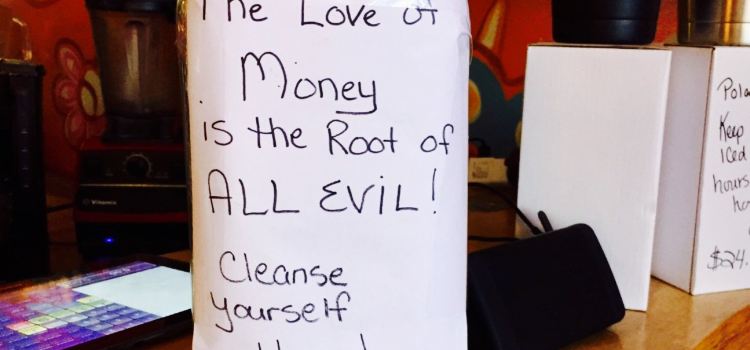 The Love of
Money
is the Root of
ALL EVIL!
Cleanse
yourself
Vitamix
Keep
iced
hours
$24.